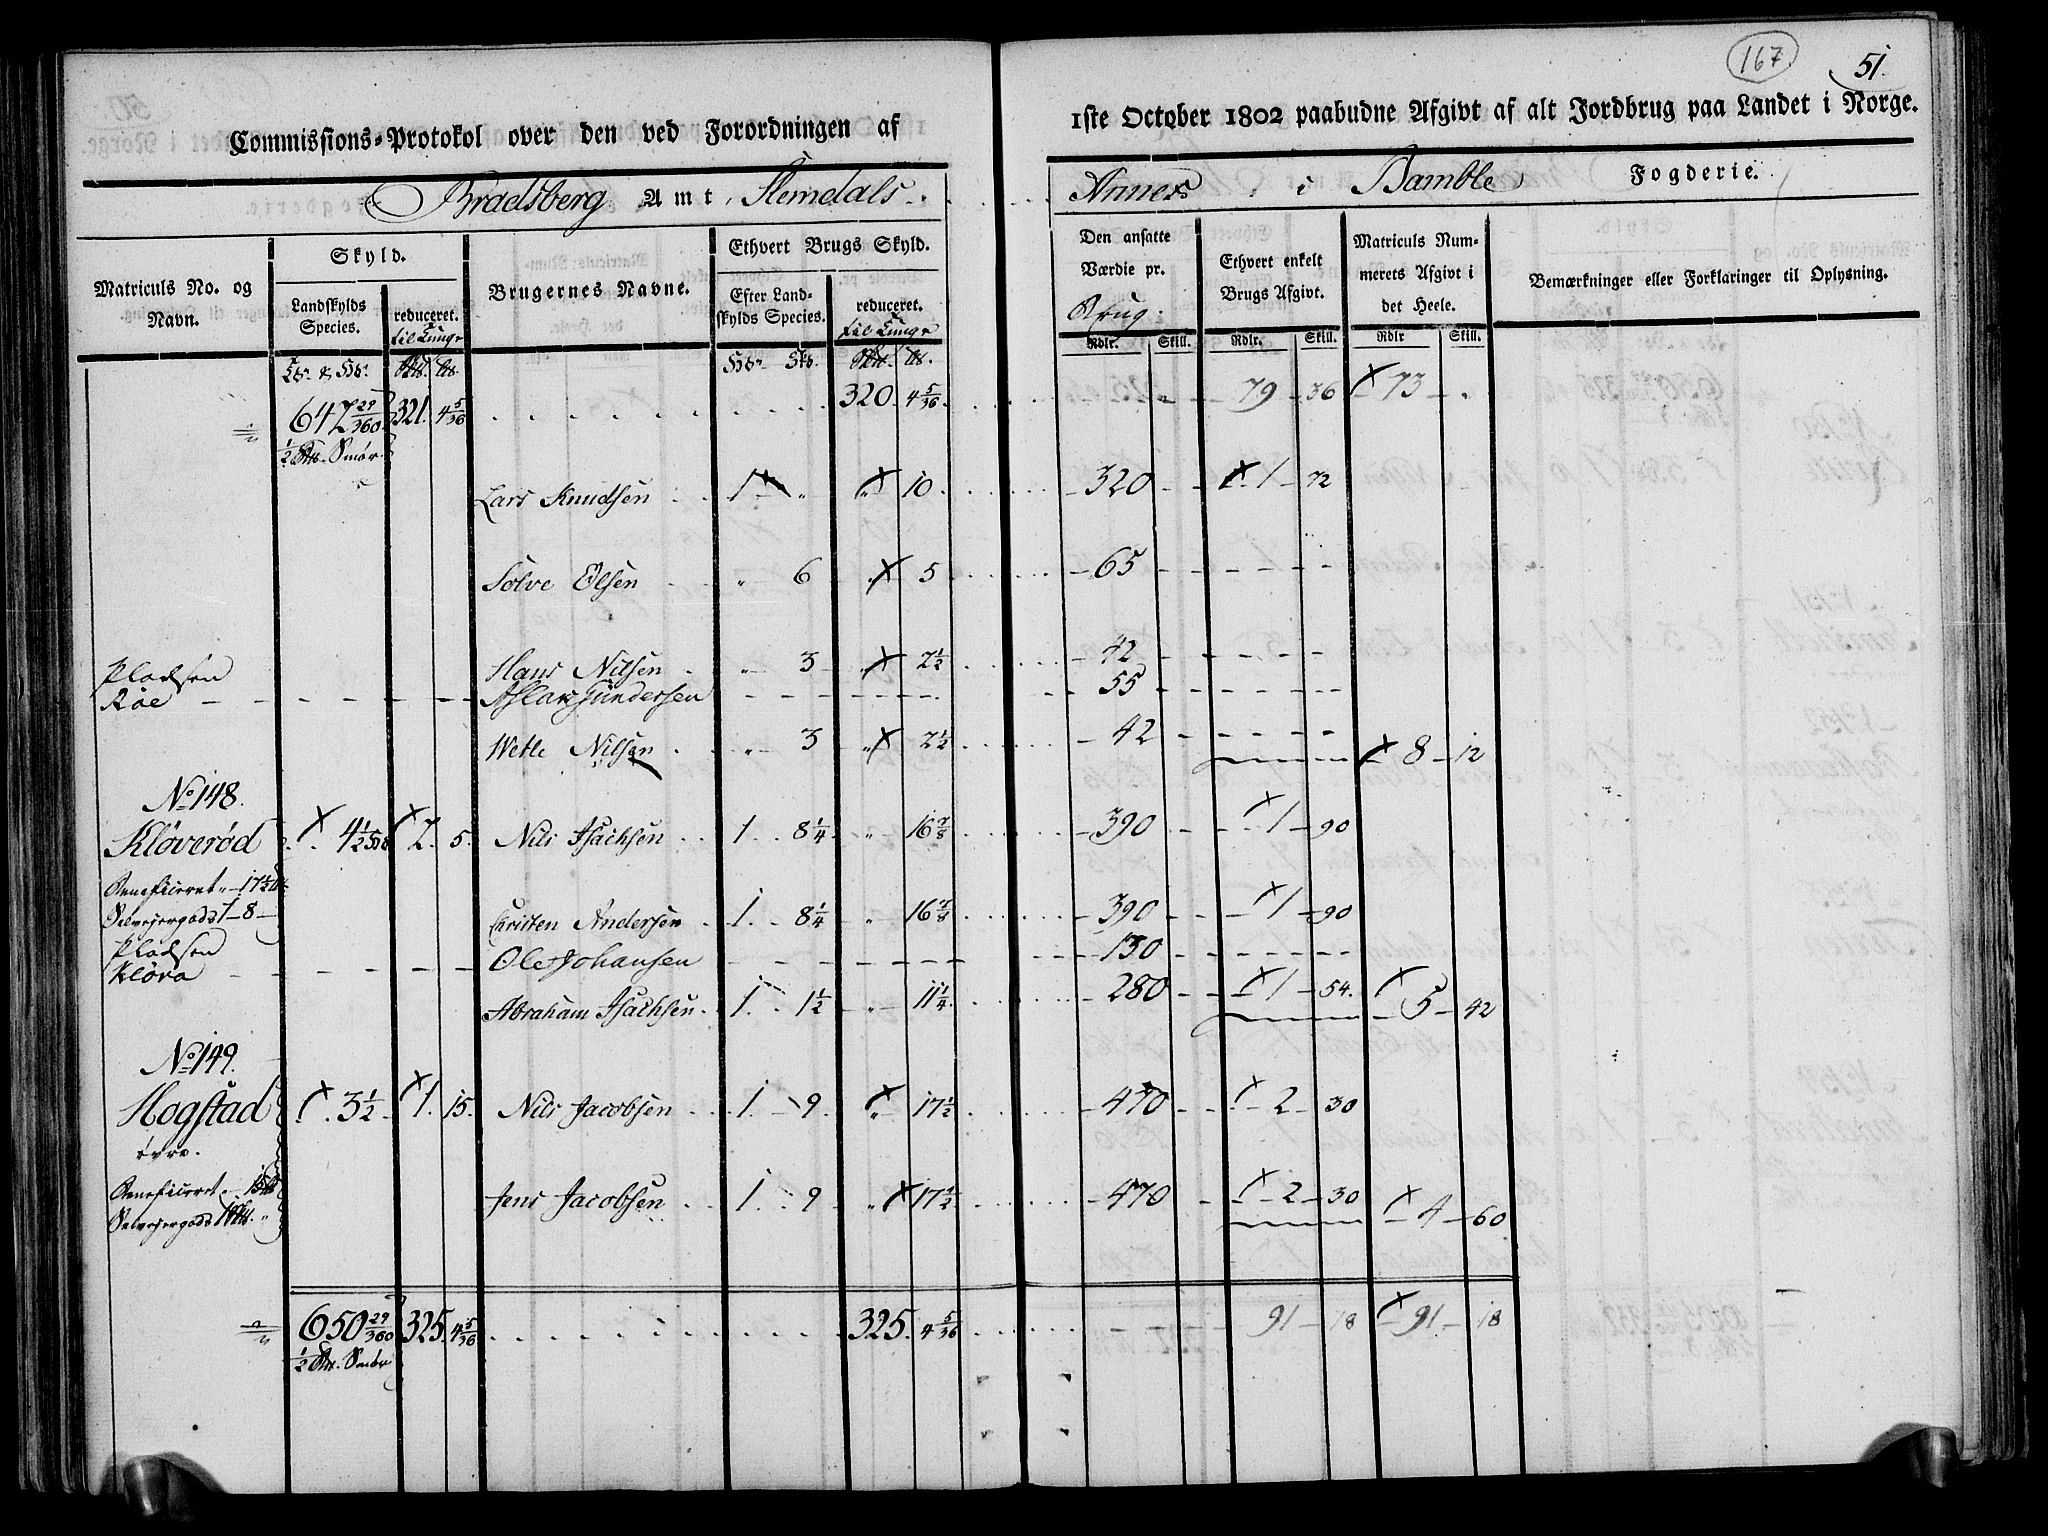 167
51.
Commissions-Protokol over den ved Forordningen af 1ste October 1802 paabudne Afgivt af alt Jordbrug paa Landet i Norge.
Bradsberg Amt, Slemdals Annex i Bamble Fogderie.
Matriculs No. og Navn. Skyld. Brugernes Navne. Ethvert Brugs Skyld. Den ansatte Værdie pr. Brug. Ethvert enkelt Brugs Afgivt. Matriculs Nummerets Afgivt i det Heele. Bemærkninger eller Forklaringer til Oplysning.
Landskylds Species. reduceret. til Tunge Efter Landskylds Species. reduceret. til Tunge
Rdlr. Skill. Rdlr. Skill. Rdlr Skill.
647 29/360 321. 4 5/36 320 4 5/36 79 36 73
1/2 Smør
Lars Knudsen 1 10 320 1 72
Solve Olsen 6 5 65
Pladsen Hans Nilsen 3 2 1/2 42
Røe Aslak Gundersen 55
Wetle Nilsen 3 2 1/2 42 8 12
No 148.
Kløverød 4 1/2 2. 5. Nils Isachsen 1. 8 1/4 16 7/8 390 1 90
Beneficeret 17 1/2
Selvejergods 1 8
Christen Andersen 1. 8 1/4 16 7/8 390 1 90
Pladsen
Kløva Ole Johansen 130
Abraham Isachsen 1. 1 1/2 11 1/4 280 1 54. 5 42
No 149.
Hogstad 3 1/2 1. 15. Nils Jacobsen 1. 9 17 1/2 470 2 30
øvre.
Beneficeret 15
Selvejergods 1
Jens Jacobsen 1 9 17 1/2 470 2 30 4 60
650 29/360 325. 4 5/36 325. 4 5/36 91 18 91 18
1/2 Smør